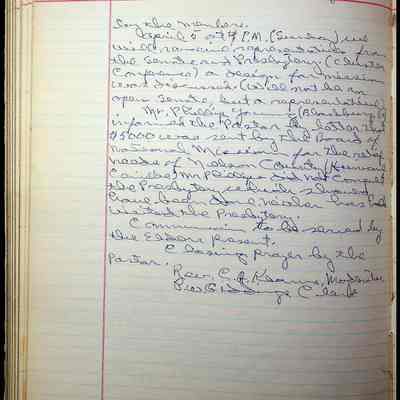 by the members.
April 5 at 4 P.M. (Sunday) we
will receive representatives from
the Senate and Presbytery. (Cluster
Conference) a design for mission
was discussed. (Will not be an
open Senate, but a representative)
Mr. Phillip Young (Blacksburg)
informed the Pastor by letter that
$5000 was sent by the Board of
National Missions for the relief
needs of Nelson County (Hurricane
Camille) Mr Phillips did not consult
the Presbytery which should
have been done neither has he
visited the Presbytery.
Communion to be served by
the Elders present.
Closing prayer by the
Pastor.
Rev. C. A. Kearns, Moderator
Clerk